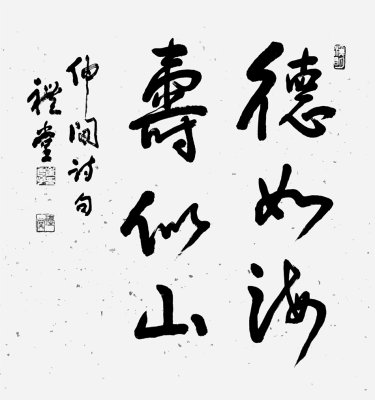 德如海
壽似山
仲閣詩句
禮堂